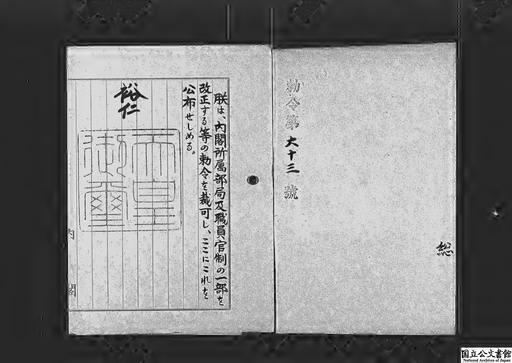 勅令第六十三號
総
朕は、內閣所属部局及職員官制の一部を
改正する等の勅令を裁可し、ここにこれを
公布せしめる。
裕仁
天皇御璽
內閣
国立公文書館
National Archives of Japan